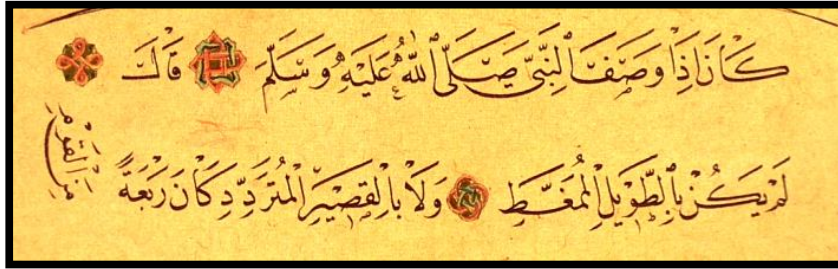 كَانَ إِذَا وَصَفَ النَّبِيَّ صَلَّى اللهُ عَلَيْهِ وَسَلَّمَ قَالَ
لَمْ يَكُنْ بِالطَّوِيلِ الْمُمَغَّطِ وَلَا بِالْقَصِيرِ الْمُتَرَدِّدِ كَانَ رَبْعَةً
مِنَ الْقَوْمِ